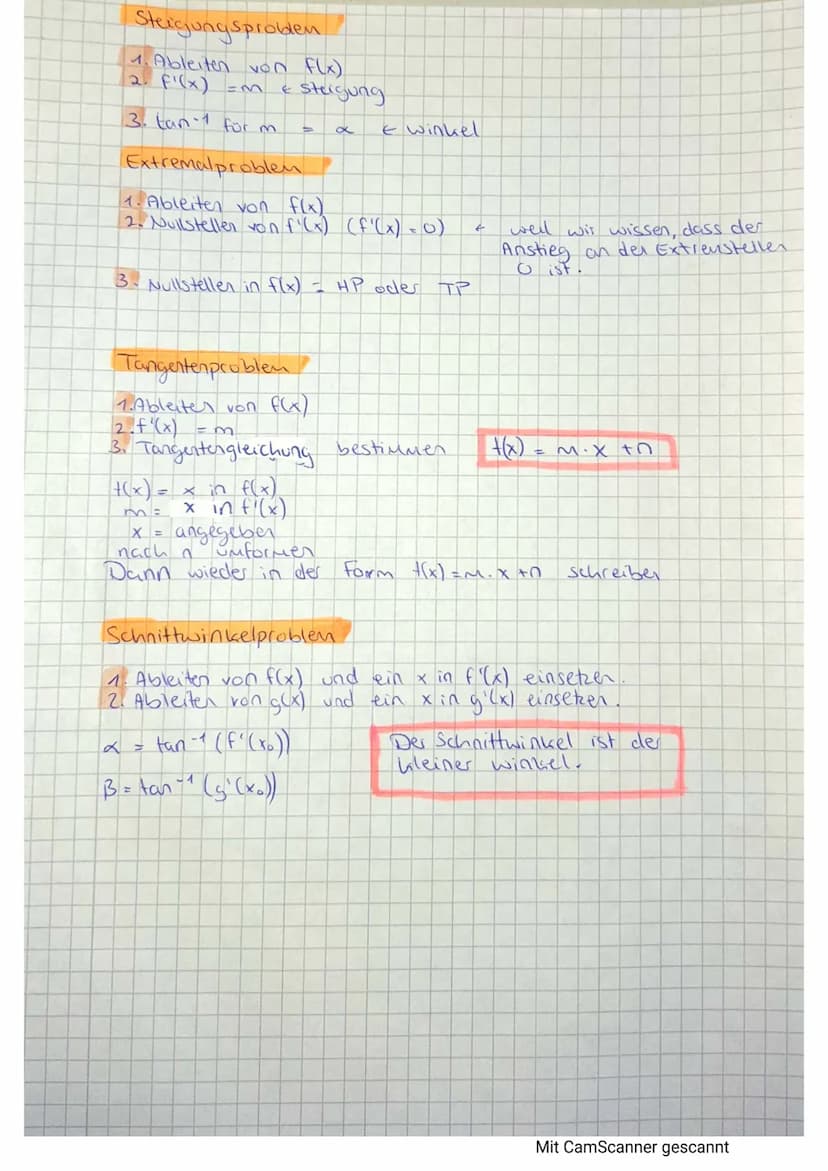 Steigungsproblem
1. Ableiten von f(x)
2. f'(x) = m ← Steigung
3. tan⁻¹ für m = α ← Winkel
Extremalproblem
1. Ableiten von f(x)
2. Nullstellen von f'(x) (f'(x) = 0) ← weil wir wissen, dass der
Anstieg an den Extremstellen
0 ist.
3. Nullstellen in f(x) = HP oder TP
Tangentenproblem
1. Ableiten von f(x)
2. f'(x) = m
3. Tangentengleichung bestimmen t(x) = m·x +n
t(x) = x in f(x)
m = x in f'(x)
x = angegeben
nach n umformen
Dann wieder in der Form t(x) = m·x +n schreiben
Schnittwinkelproblem
1. Ableiten von f(x) und ein x in f'(x) einsetzen.
2. Ableiten von g(x) und ein x in g'(x) einsetzen.
α = tan⁻¹ (f'(x₀)) Der Schnittwinkel ist der
kleiner Winkel.
β = tan⁻¹ (g'(x₀))
Mit CamScanner gescannt